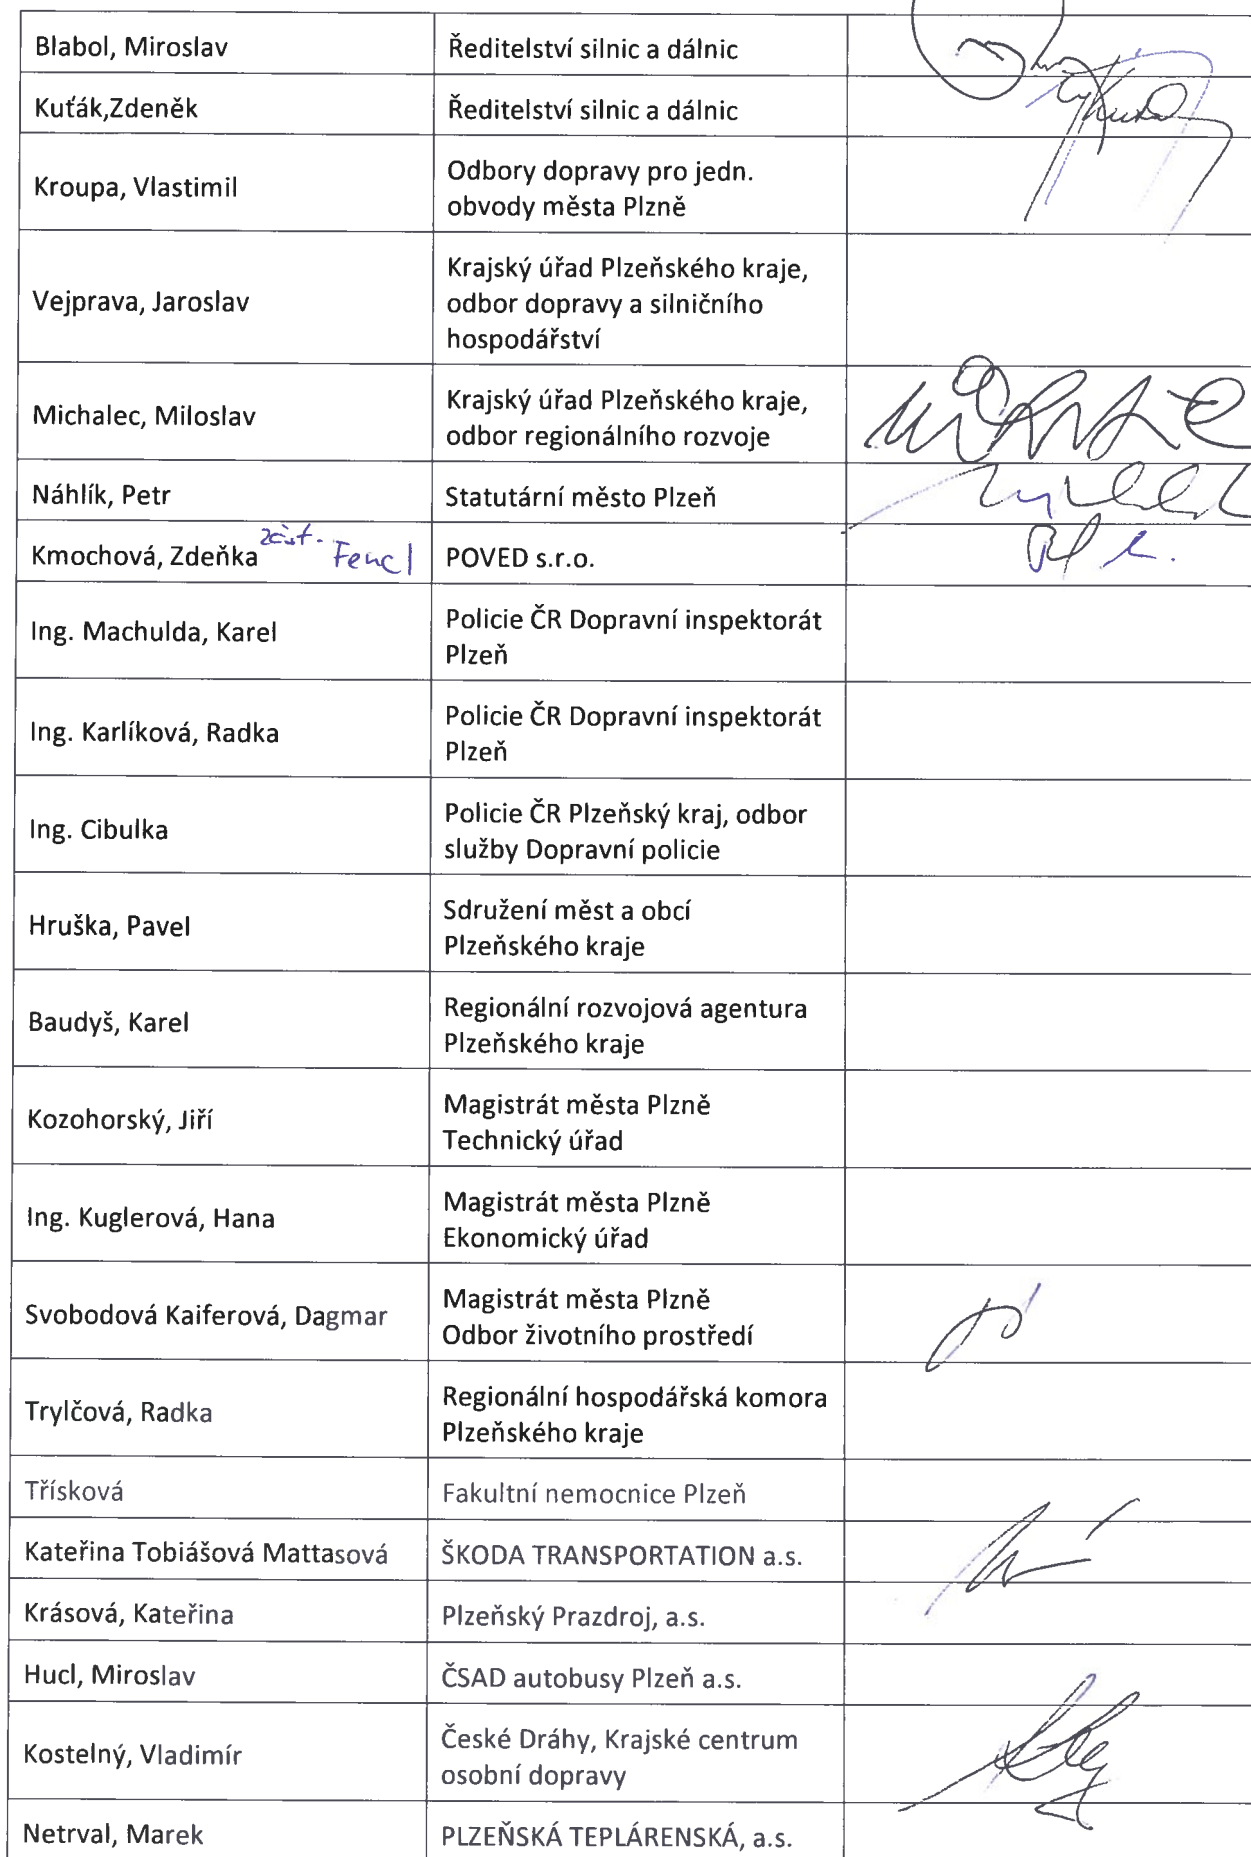 Blabol, Miroslav Ředitelství silnic a dálnic
Kuťák,Zdeněk Ředitelství silnic a dálnic
Kroupa, Vlastimil Odbory dopravy pro jedn.
obvody města Plzně
Vejprava, Jaroslav Krajský úřad Plzeňského kraje,
odbor dopravy a silničního
hospodářství
Michalec, Miloslav Krajský úřad Plzeňského kraje,
odbor regionálního rozvoje
Náhlík, Petr Statutární město Plzeň
Kmochová, Zdeňka zást. Fencl POVED s.r.o.
Ing. Machulda, Karel Policie ČR Dopravní inspektorát
Plzeň
Ing. Karlíková, Radka Policie ČR Dopravní inspektorát
Plzeň
Ing. Cibulka Policie ČR Plzeňský kraj, odbor
služby Dopravní policie
Hruška, Pavel Sdružení měst a obcí
Plzeňského kraje
Baudyš, Karel Regionální rozvojová agentura
Plzeňského kraje
Kozohorský, Jiří Magistrát města Plzně
Technický úřad
Ing. Kuglerová, Hana Magistrát města Plzně
Ekonomický úřad
Svobodová Kaiferová, Dagmar Magistrát města Plzně
Odbor životního prostředí
Trylčová, Radka Regionální hospodářská komora
Plzeňského kraje
Třísková Fakultní nemocnice Plzeň
Kateřina Tobiášová Mattasová ŠKODA TRANSPORTATION a.s.
Krásová, Kateřina Plzeňský Prazdroj, a.s.
Hucl, Miroslav ČSAD autobusy Plzeň a.s.
Kostelný, Vladimír České Dráhy, Krajské centrum
osobní dopravy
Netrval, Marek PLZEŇSKÁ TEPLÁRENSKÁ, a.s.